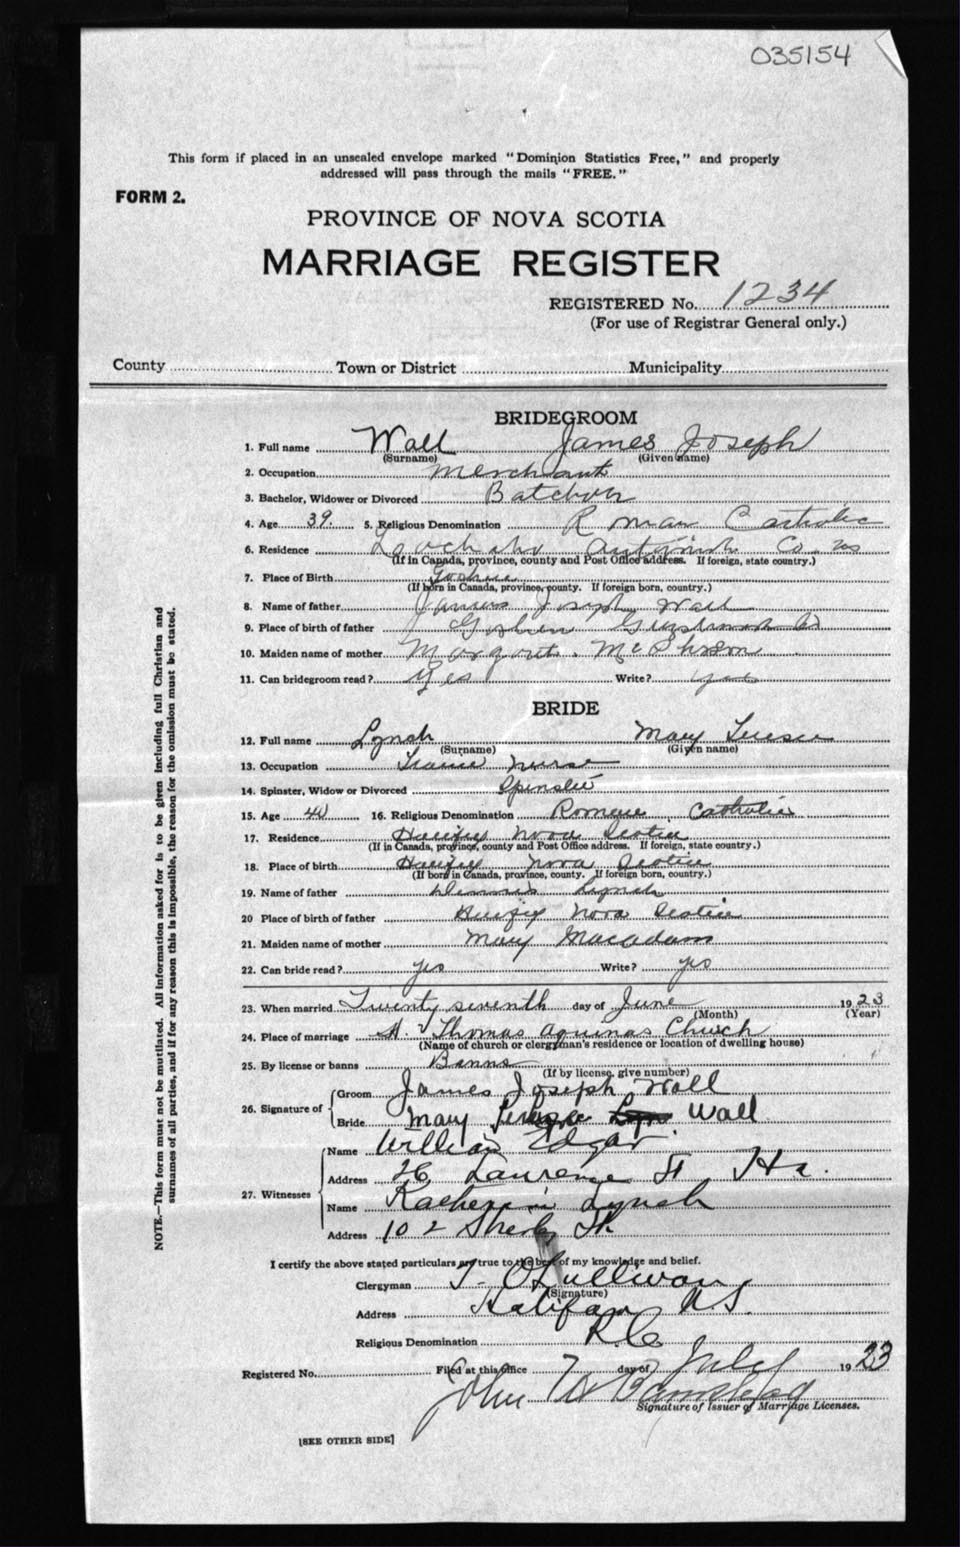 035154
This form if placed in an unsealed envelope marked "Dominion Statistics Free," and properly
addressed will pass through the mails "FREE."
FORM 2.
PROVINCE OF NOVA SCOTIA
MARRIAGE REGISTER
REGISTERED No. 1234
(For use of Registrar General only.)
County Town or District Municipality
BRIDEGROOM
1. Full name Wall James Joseph
(Surname) (Given name)
2. Occupation Merchant
3. Bachelor, Widower or Divorced Batchor
4. Age 39. 5. Religious Denomination Roman Catholic
6. Residence Co. NS
(If in Canada, province, county and Post Office address. If foreign, state country.)
7. Place of Birth Goshen
(If born in Canada, province, county. If foreign born, country.)
8. Name of father James Joseph Wall
9. Place of birth of father Goshen Co
10. Maiden name of mother
11. Can bridegroom read? Yes Write? yes
BRIDE
12. Full name Lynch Mary Terese
(Surname) (Given name)
13. Occupation Nurse
14. Spinster, Widow or Divorced Spinster
15. Age 40 16. Religious Denomination Roman Catholic
17. Residence Halifax Nova Scotia
(If in Canada, province, county and Post Office address. If foreign, state country.)
18. Place of birth Halifax Nova Scotia
(If born in Canada, province, county. If foreign born, country.)
19. Name of father Dennis Lynch
20 Place of birth of father Halifax Nova Scotia
21. Maiden name of mother Mary Macadam
22. Can bride read? yes Write? yes
23. When married Twenty seventh day of June 1923
(Month) (Year)
24. Place of marriage St. Thomas Aquinas Church
(Name of church or clergyman's residence or location of dwelling house)
25. By license or banns Banns
(If by license, give number)
26. Signature of Groom James Joseph Wall
Bride Mary Wall
27. Witnesses
Name William Edgar
Address 26 Laurence St Hx.
Name Lynch
Address 102
I certify the above stated particulars are true to the best of my knowledge and belief.
Clergyman T. O'Sullivan
(Signature)
Address Halifax N.S.
Religious Denomination R.C.
Registered No. Filed at this office day of July 1923
John
Signature of Issuer of Marriage Licenses.
[SEE OTHER SIDE]
NOTE.—This form must not be mutilated. All information asked for is to be given including full Christian and
surnames of all parties, and if for any reason this is impossible, the reason for the omission must be stated.